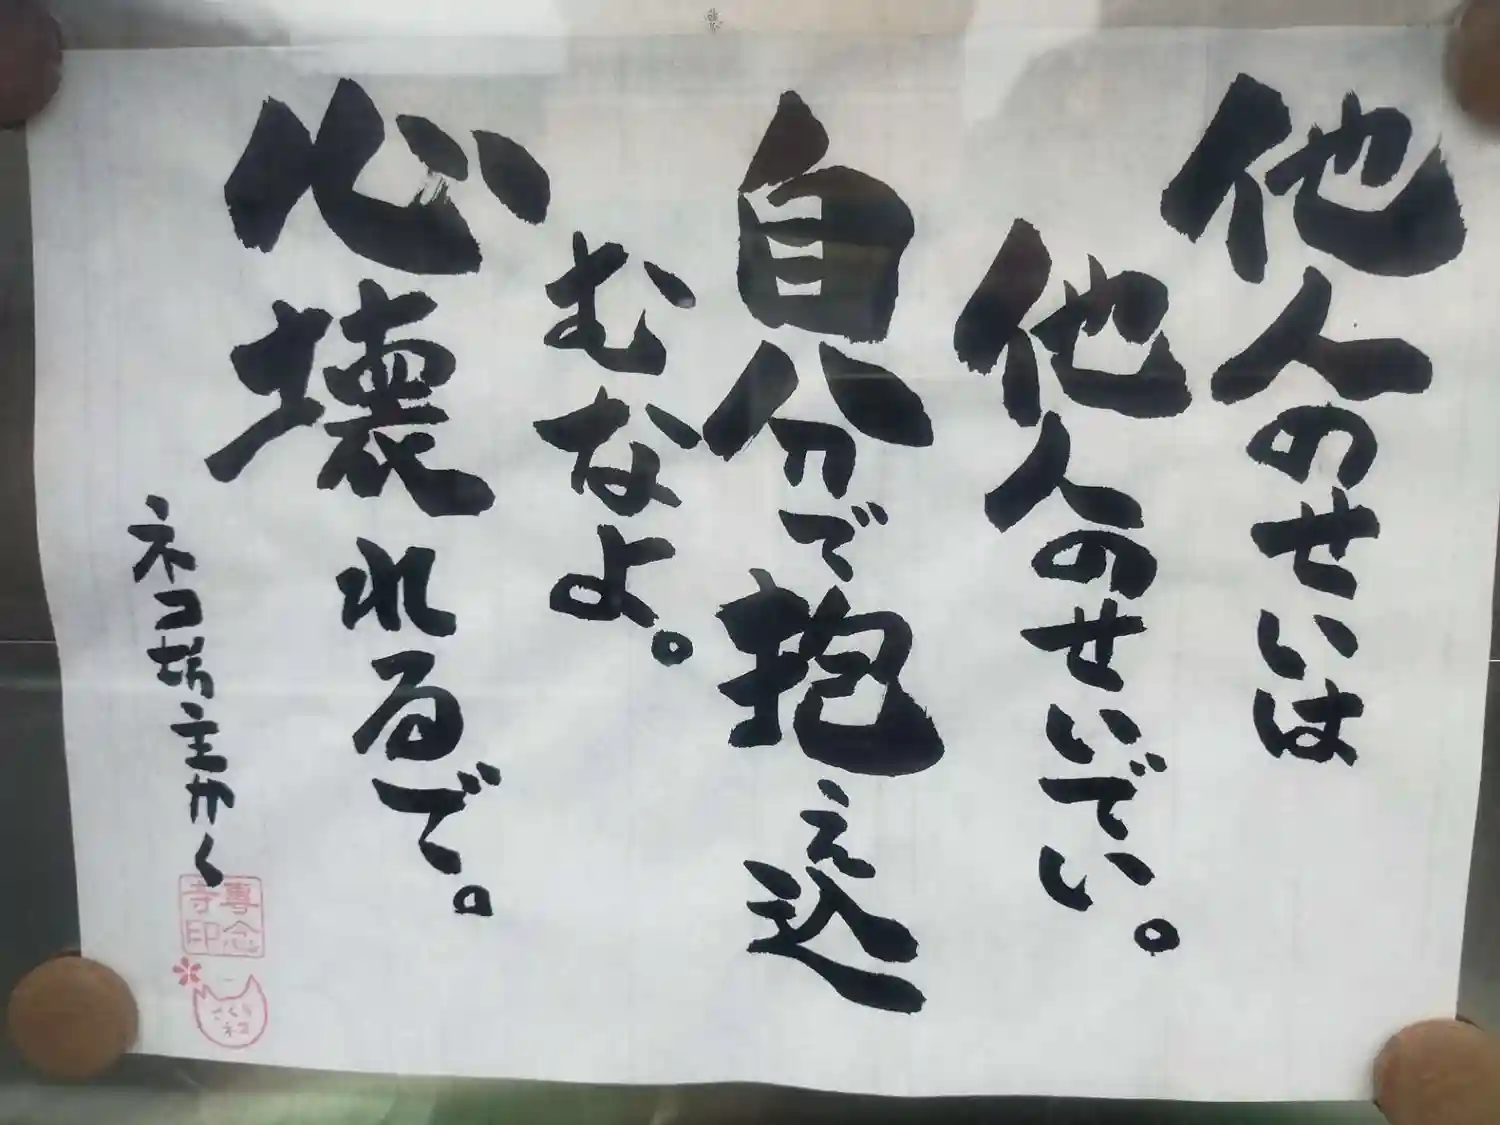 他人のせいは
他人のせいでい。
自分で抱え込
むなよ。
心壊れるで。
ネコ坊主かく
専念
寺印
さくら
ネコ